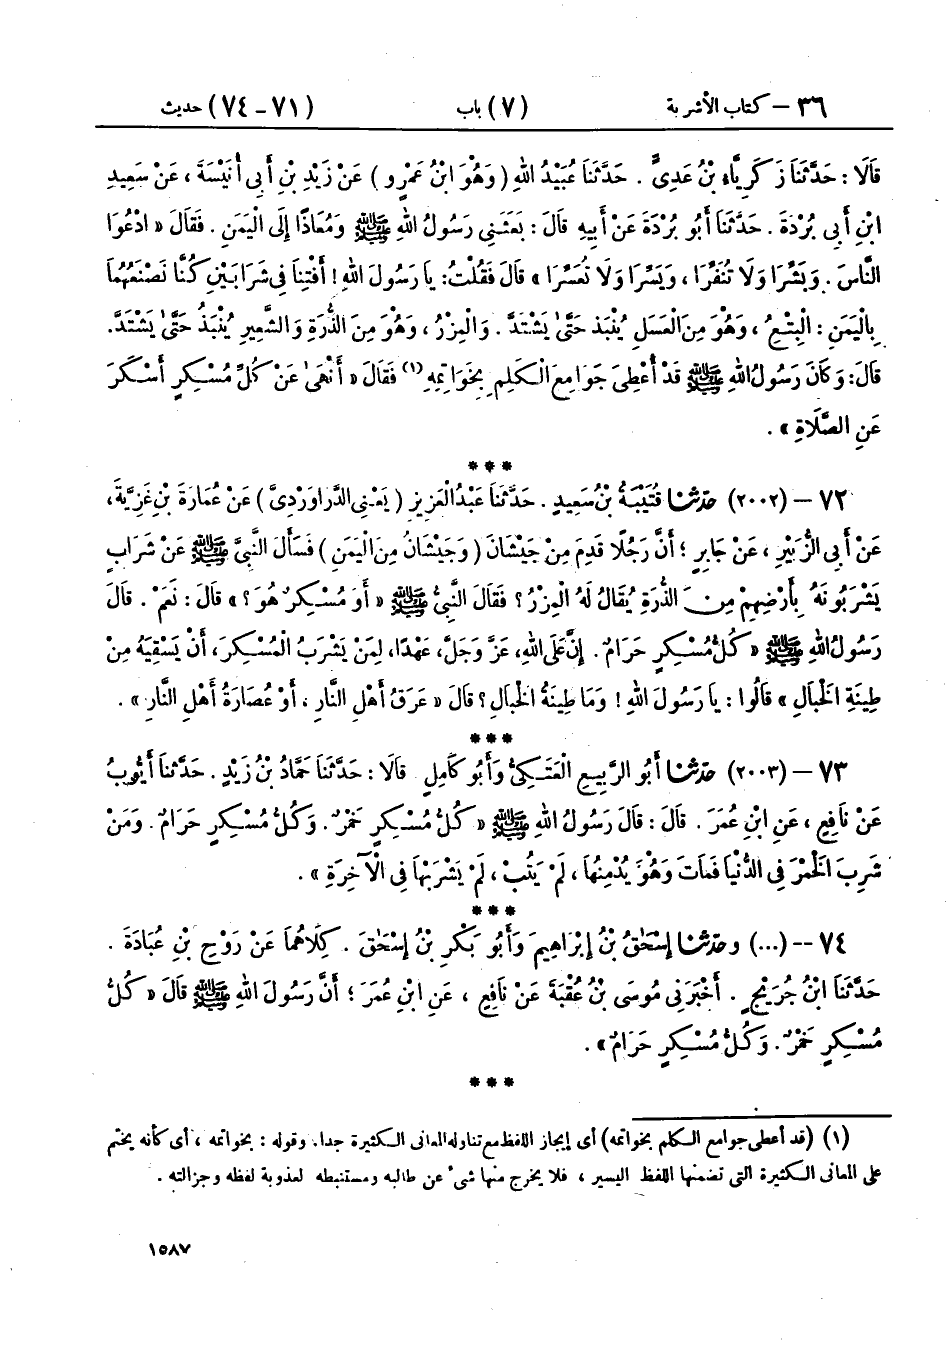 ٣٦ – كتاب الأشربة (٧) باب (٧١ – ٧٤) حديث
قَالَا : حَدَّثَنَا زَكَرِيَّاءُ بْنُ عَدِيٍّ . حَدَّثَنَا عُبَيْدُ اللهِ ( وَهُوَ ابْنُ عَمْرٍو ) عَنْ زَيْدِ بْنِ أَبِي أُنَيْسَةَ ، عَنْ سَعِيدِ
ابْنِ أَبِي بُرْدَةَ . حَدَّثَنَا أَبُو بُرْدَةَ عَنْ أَبِيهِ قَالَ : بَعَثَنِي رَسُولُ اللهِ ﷺ وَمُعَاذًا إِلَى الْيَمَنِ . فَقَالَ « ادْعُوَا
النَّاسَ . وَبَشِّرَا وَلَا تُنَفِّرَا ، وَيَسِّرَا وَلَا تُعَسِّرَا » قَالَ فَقُلْتُ : يَا رَسُولَ اللهِ ! أَفْتِنَا فِي شَرَابَيْنِ كُنَّا نَصْنَعُهُمَا
بِالْيَمَنِ : الْبِتْعُ ، وَهُوَ مِنَ الْعَسَلِ يُنْبَذُ حَتَّىٰ يَشْتَدَّ . وَالْمِزْرُ ، وَهُوَ مِنَ الذُّرَةِ وَالشَّعِيرِ يُنْبَذُ حَتَّىٰ يَشْتَدَّ .
قَالَ : وَكَانَ رَسُولُ اللهِ ﷺ قَدْ أُعْطِيَ جَوَامِعَ الْكَلِمِ بِخَوَاتِمِهِ (١) فَقَالَ « أَنْهَىٰ عَنْ كُلِّ مُسْكِرٍ أَسْكَرَ
عَنِ الصَّلَاةِ » .
***
٧٢ – (٢٠٠٢) حَدَّثَنَا قُتَيْبَةُ بْنُ سَعِيدٍ . حَدَّثَنَا عَبْدُ الْعَزِيزِ ( يَعْنِي الدَّرَاوَرْدِيَّ ) عَنْ عُمَارَةَ بْنِ غَزِيَّةَ ،
عَنْ أَبِي الزُّبَيْرِ ، عَنْ جَابِرٍ ؛ أَنَّ رَجُلًا قَدِمَ مِنْ جَيْشَانَ ( وَجَيْشَانُ مِنَ الْيَمَنِ ) فَسَأَلَ النَّبِيَّ ﷺ عَنْ شَرَابٍ
يَشْرَبُونَهُ بِأَرْضِهِمْ مِنَ الذُّرَةِ يُقَالُ لَهُ الْمِزْرُ ؟ فَقَالَ النَّبِيُّ ﷺ « أَوَ مُسْكِرٌ هُوَ ؟ » قَالَ : نَعَمْ . قَالَ
رَسُولُ اللهِ ﷺ « كُلُّ مُسْكِرٍ حَرَامٌ . إِنَّ عَلَى اللهِ ، عَزَّ وَجَلَّ ، عَهْدًا ، لِمَنْ يَشْرَبُ الْمُسْكِرَ ، أَنْ يَسْقِيَهُ مِنْ
طِينَةِ الْخَبَالِ » قَالُوا : يَا رَسُولَ اللهِ ! وَمَا طِينَةُ الْخَبَالِ ؟ قَالَ « عَرَقُ أَهْلِ النَّارِ . أَوْ عُصَارَةُ أَهْلِ النَّارِ » .
***
٧٣ – (٢٠٠٣) حَدَّثَنَا أَبُو الرَّبِيعِ الْعَتَكِيُّ وَأَبُو كَامِلٍ قَالَا : حَدَّثَنَا حَمَّادُ بْنُ زَيْدٍ . حَدَّثَنَا أَيُّوبُ
عَنْ نَافِعٍ ، عَنِ ابْنِ عُمَرَ . قَالَ : قَالَ رَسُولُ اللهِ ﷺ « كُلُّ مُسْكِرٍ خَمْرٌ . وَكُلُّ مُسْكِرٍ حَرَامٌ . وَمَنْ
شَرِبَ الْخَمْرَ فِي الدُّنْيَا فَمَاتَ وَهُوَ يُدْمِنُهَا ، لَمْ يَتُبْ ، لَمْ يَشْرَبْهَا فِي الْآخِرَةِ » .
***
٧٤ – (...) وحَدَّثَنَا إِسْحَٰقُ بْنُ إِبْرَاهِيمَ وَأَبُو بَكْرِ بْنُ إِسْحَٰقَ . كِلَاهُمَا عَنْ رَوْحِ بْنِ عُبَادَةَ .
حَدَّثَنَا ابْنُ جُرَيْجٍ . أَخْبَرَنِي مُوسَى بْنُ عُقْبَةَ عَنْ نَافِعٍ ، عَنِ ابْنِ عُمَرَ ؛ أَنَّ رَسُولَ اللهِ ﷺ قَالَ « كُلُّ
مُسْكِرٍ خَمْرٌ . وَكُلُّ مُسْكِرٍ حَرَامٌ » .
***
(١) (قد أعطى جوامع الكلم بخواتمه) أى إيجاز اللفظ مع تناوله المعانى الكثيرة جدا. وقوله : بخواتمه ، أى كأنه يختم
على المعانى الكثيرة التى تضمنها اللفظ اليسير ، فلا يخرج منها شىء عن طالبه ومستنبطه لعذوبة لفظه وجزالته .
١٥٨٧